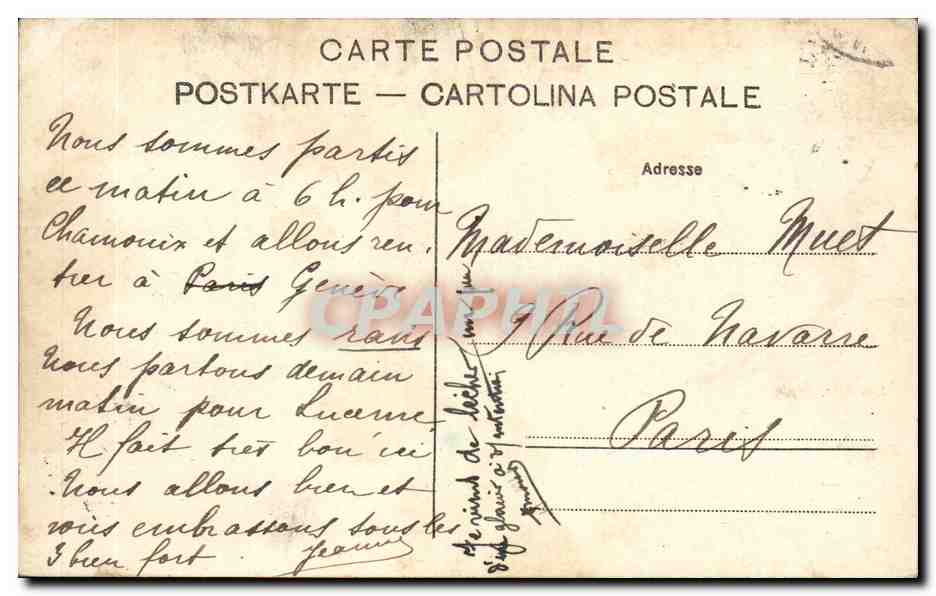 CARTE POSTALE
POSTKARTE — CARTOLINA POSTALE
Nous sommes partis
ce matin à 6 h. pour
Chamonix et allons ren-
trer à Paris Genève
Nous sommes ravis
Nous partons demain
matin pour Lucerne
Il fait très bon ici
Nous allons bien et
vous embrassons tous les
3 bien fort. Jeanne
Je viens de lécher un peu
d'un glacier à
Adresse
Mademoiselle Muet
9 Rue de Navarre
Paris
CPAPHIL